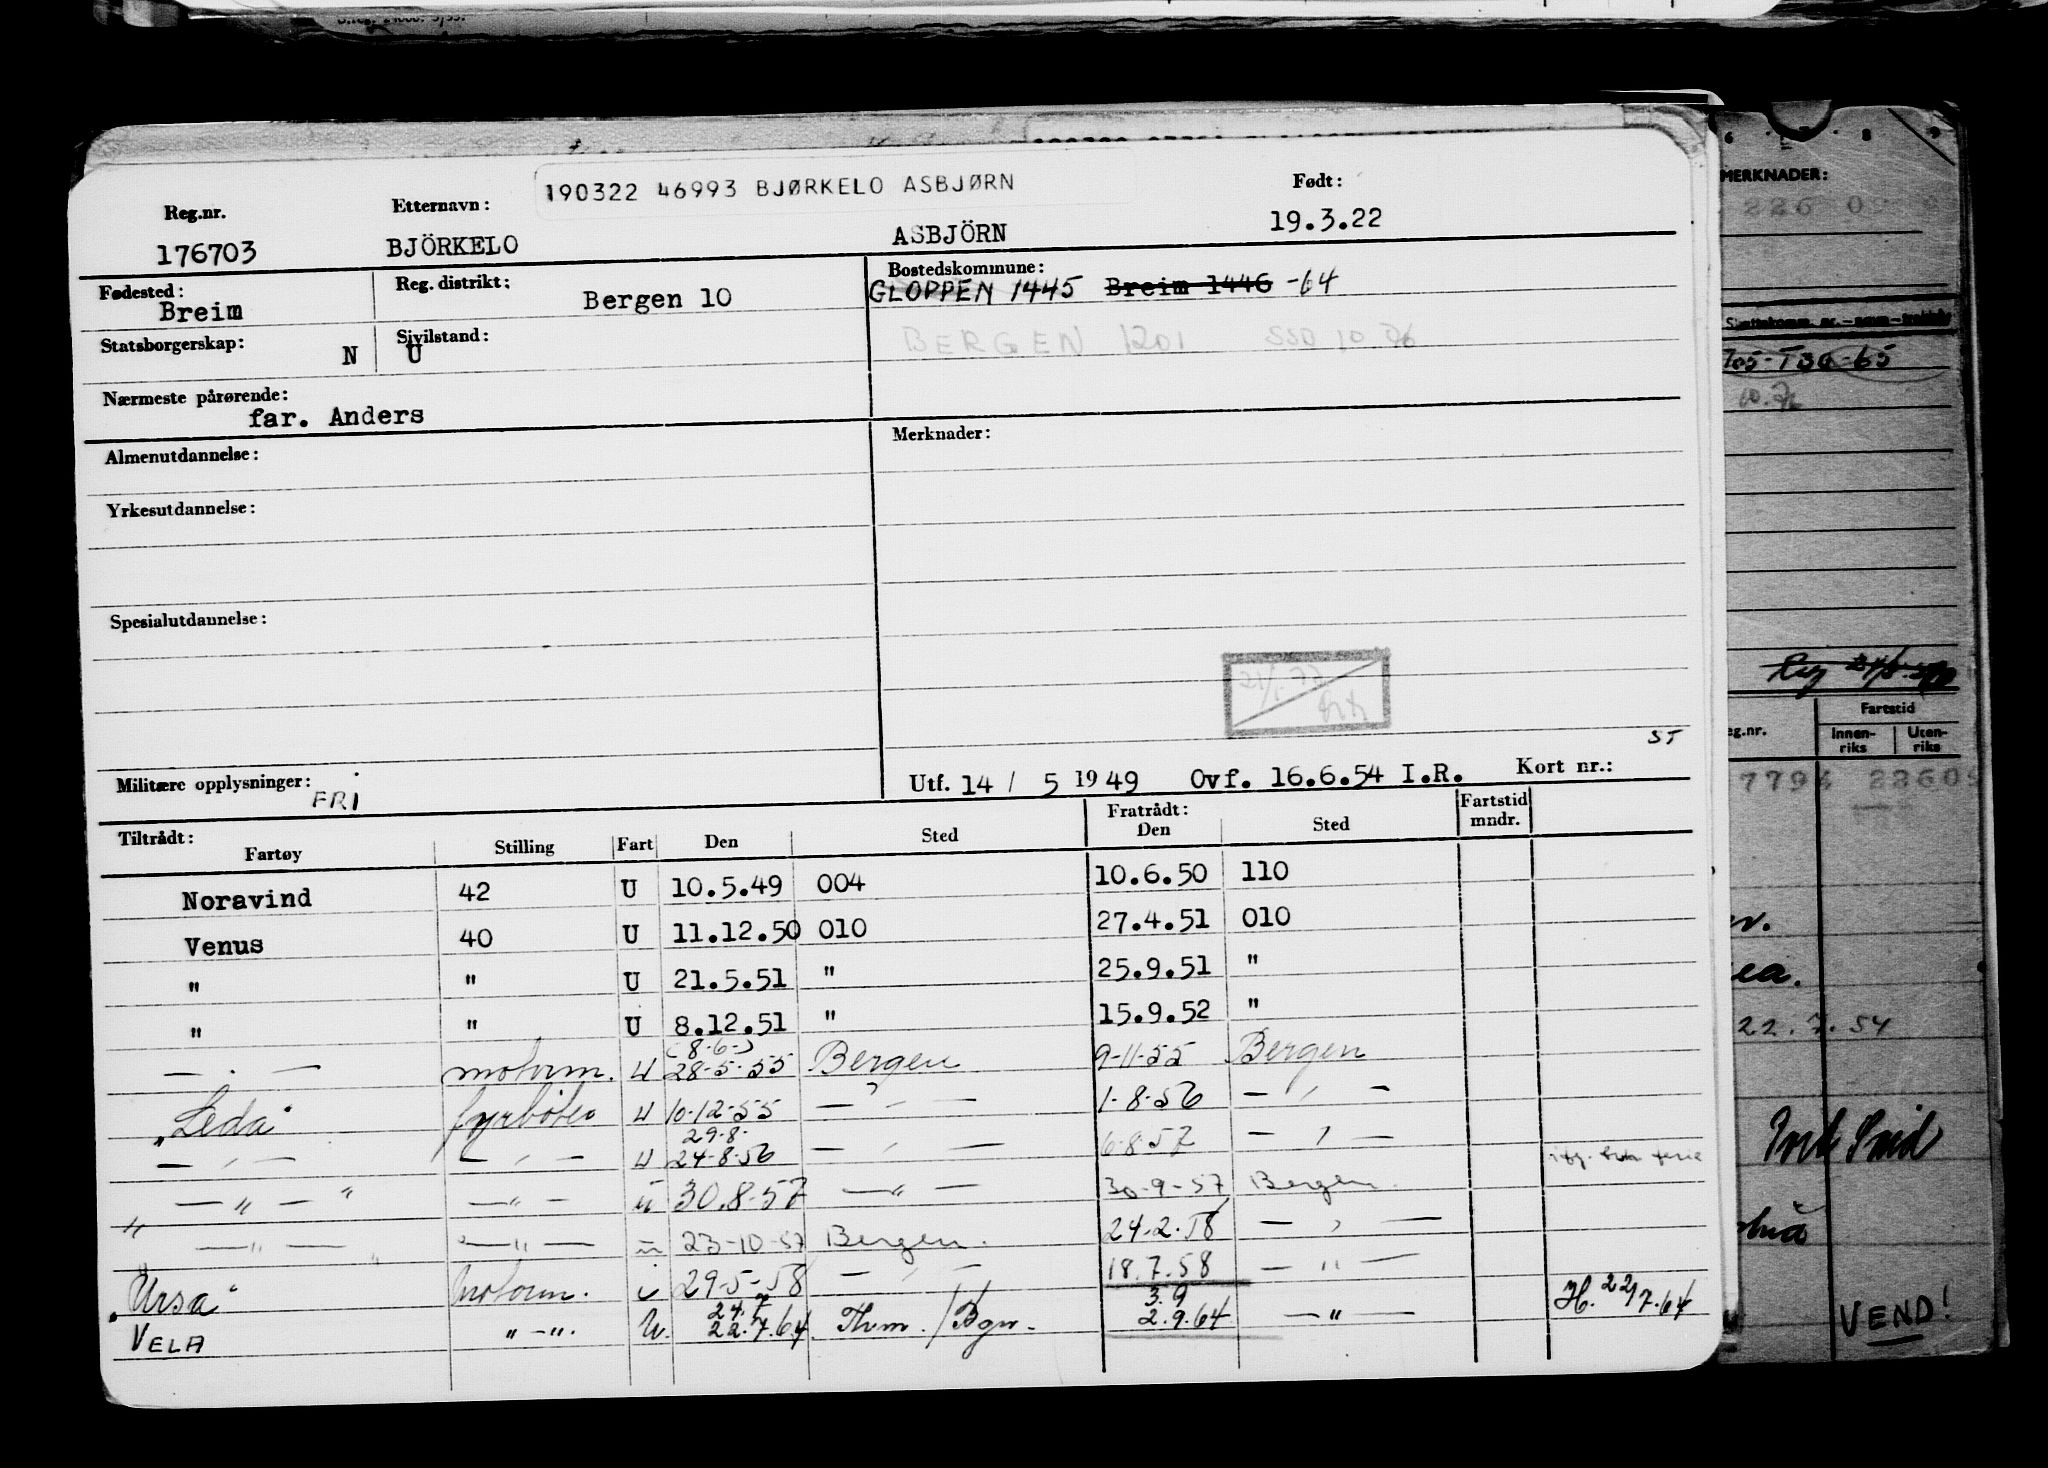 190322 46993 BJØRKELO ASBJØRN
Reg.nr. Etternavn: Født:
176703 BJÖRKELO ASBJÖRN 19.3.22
Fødested: Reg. distrikt: Bostedskommune:
Breim Bergen 10 GLOPPEN 1445 Breim 1446 -64
Statsborgerskap: N Sivilstand: U BERGEN 1201 SSD 10.76
Nærmeste pårørende:
far. Anders
Almenutdannelse: Merknader:
Yrkesutdannelse:
Spesialutdannelse:
21/1.77
ST
Militære opplysninger: FRI Utf. 14 / 5 1949 Ovf. 16.6.54 I.R. Kort nr.:
Tiltrådt: Fratrådt: Fartstid
Fartøy Stilling Fart Den Sted Den Sted mndr.
Noravind 42 U 10.5.49 004 10.6.50 110
Venus 40 U 11.12.50 010 27.4.51 010
" " U 21.5.51 " 25.9.51 "
" " U 8.12.51 " 15.9.52 "
(8-6-)
— . — motorm. U 28-5-55 Bergen 9-11-55 Bergen
"Leda" fyrböter U 10-12-55 — " — 1-8-56 — " —
29-8-
— " — — " — U 24-8-56 — " — 6-8-57 — " —
— " — — " — U 30.8-57 — " — 30-9-57 Bergen.
— " — — " — U 23-10-57 Bergen. 24-2-58 — " —
"Ursa" Motorm. i 29-5-58 — " — 18.7.58 — " —
24.7 3.9
VELA " — ". U. 22.7.64 Thm./Bgn. 2.9.64 — " — H. 22/7.64
6 7 8 9
MERKNADER:
705-T30-65
10.76
eg.nr. Fartstid
Innen-riks Uten-riks
22.7.54
VEND!